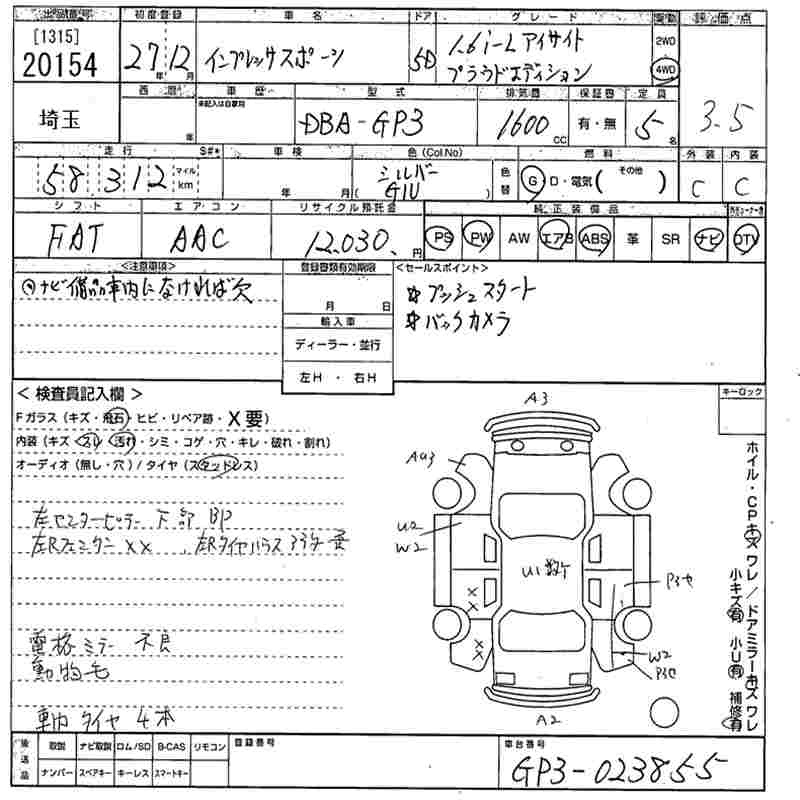 出品番号 初度登録 車名 ドア グレード 駆動 評価点
[1315]
20154 27年12月 インプレッサスポーツ 5D 1.6i-L アイサイト
プラウドエディション
2WD
4WD
3.5
西暦 車歴 型式 排気量 保証書 定員
埼玉 年 未記入は自家用 DBA-GP3 1600cc 有・無 5名
走行 S#* 車検 色(Col.No) 燃料 外装 内装
58312 マイル km 年 月 シルバー
( G1U ) 色替 G・D・電気( その他 ) C C
シフト エアコン リサイクル預託金 純正装備品
FAT AAC 12,030.円 PS PW AW エアB ABS 革 SR ナビ DTV
<注意事項> 登録書類有効期限 <セールスポイント>
ナビ備品車内になければ欠
月 日
輸入車
ディーラー・並行
左H・右H
プッシュスタート
バックカメラ
<検査員記入欄> キーロック
Fガラス(キズ・飛石・ヒビ・リペア跡・X要)
内装(キズ・スレ・汚れ・シミ・コゲ・穴・キレ・破れ・割れ)
オーディオ(無し・穴)/タイヤ(スタッドレス)
左センターピラー下部 BP
左Rフェンダー XX、左Rタイヤハウス
電格ミラー 不良
動物毛
車内 タイヤ 4本
A3
U2
W2
U1数ケ
X
X
X
X
W2
A2
ホイル・CPキズ ワレ/ドアミラーキズ ワレ
小キズ有 小U有 補修有
後送品 取説 ナビ取説 ロム/SD B-CAS リモコン 登録番号 車台番号
ナンバー スペアキー キーレス スマートキー GP3-023855